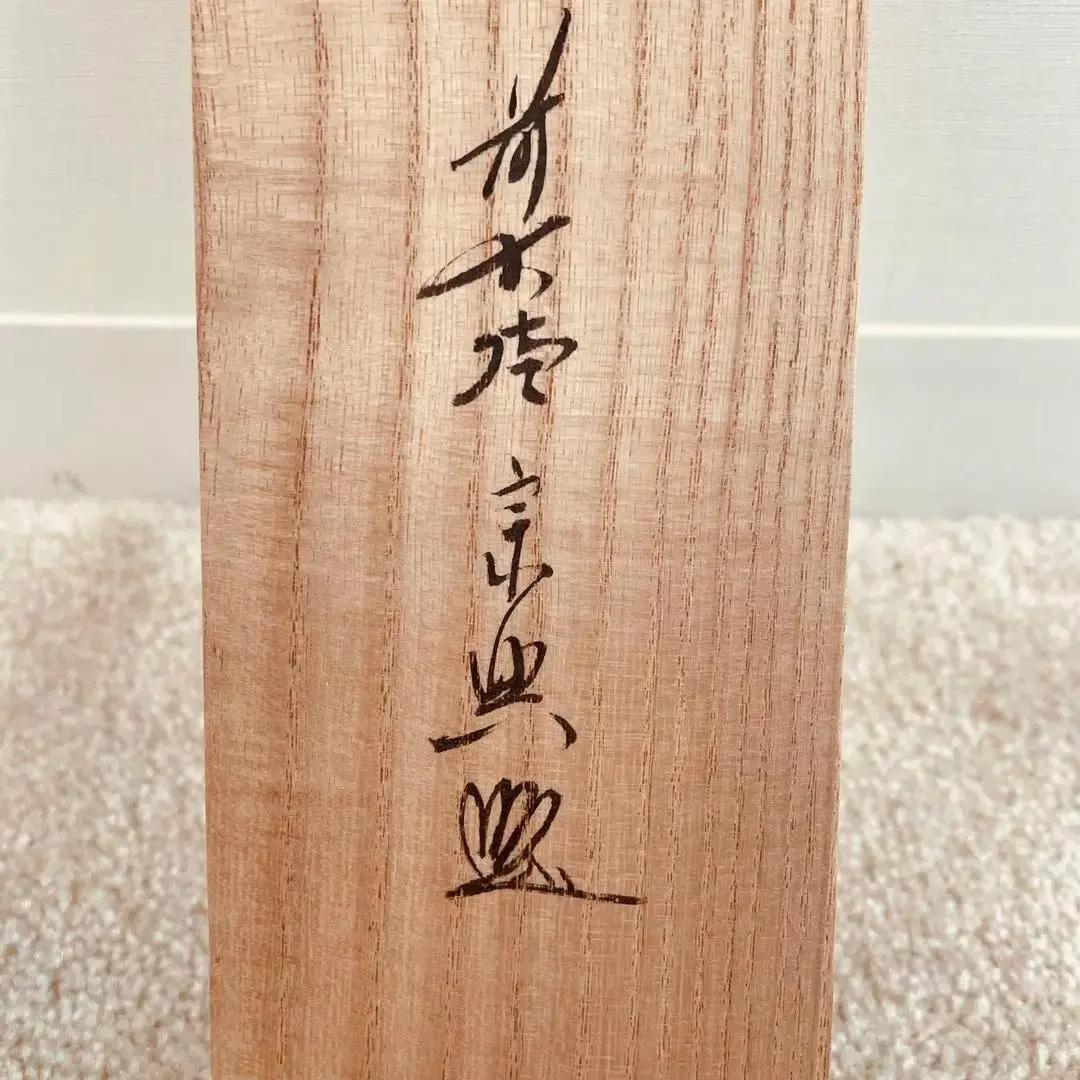 前大徳 宗典